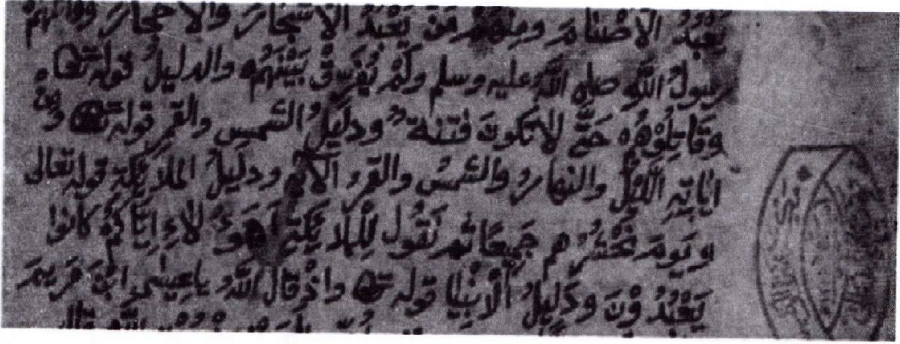 يَعْبُدُ الْاَصْنَامَ وَمِنْهُمْ مَنْ يَعْبُدُ الْاَشْجَارَ وَالْاَحْجَارَ وَقَاتَلَهُمْ
رسولُ اللّٰهِ صلى اللّٰه عليه وسلم وَلَمْ يُفَرِّقْ بَيْنَهُمْ والدليلُ قوله تعالى
وَقَاتِلُوْهُمْ حَتَّىٰ لاَ تَكُونَ فِتْنَةٌ وَدَلِيلُ الشَّمسِ والقمرِ قوله تعالى وَمِنْ
اٰيَاتِهِ اللَّيْلُ والنهارُ والشَّمْسُ والقَمَرُ الآيه ودَلِيلُ الملايِكَةِ قوله تعالى
وَيَومَ نَحْشُرُهم جَمِيعًا ثم نَقُولُ لِلْمَلَايِكَةِ اَهَؤُلَاءِ اِيَّاكُمْ كانوا
يَعْبُدُوْنَ وَدَلِيلُ الْاَنْبِيَا قوله تعالى وَاِذْ قَالَ اللّٰهُ يَاعِيسَى ابْنَ مَرْيَمَ